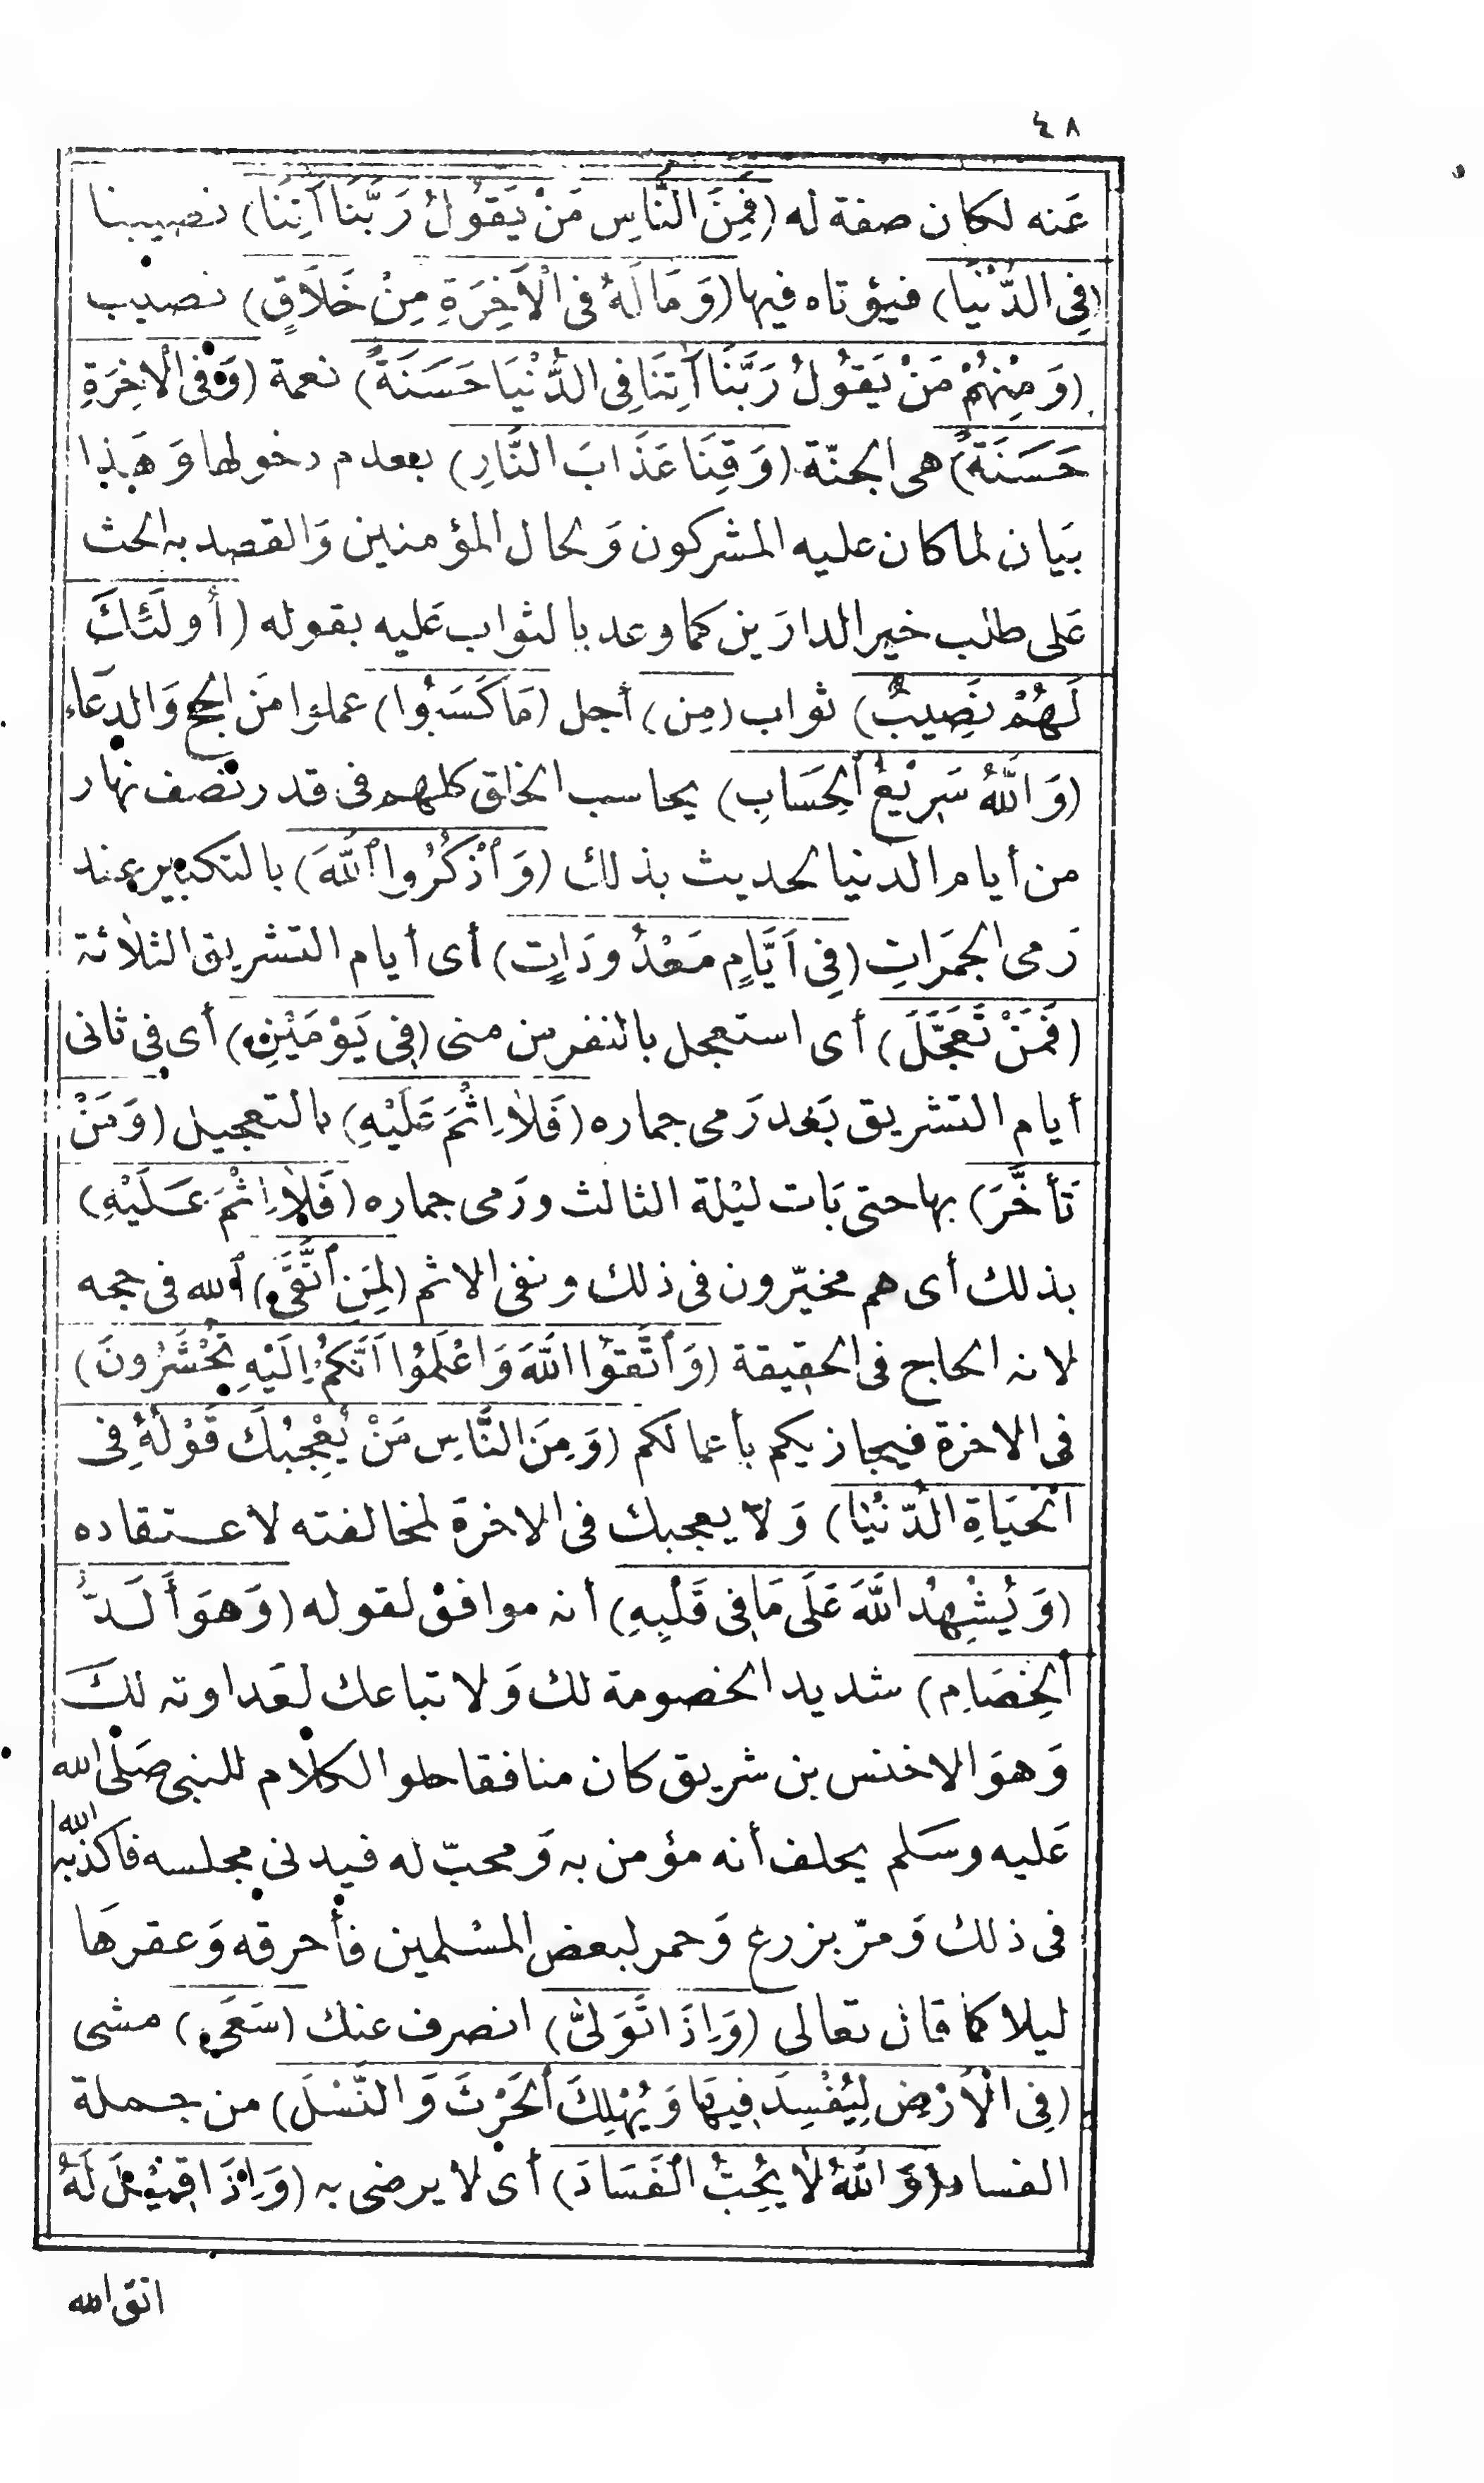 ٤٨
عَنه لكان صفة له (فَمِنَ النَّاسِ مَنْ يَقُولُ رَبَّنَا آتِنَا) نصيبنا
(فِي الدُّنْيَا) فيؤتاه فيها (وَمَا لَهُ فِى الْاَخِرَةِ مِنْ خَلَاقٍ) نصيب
(وَمِنْهُمْ مَنْ يَقُولُ رَبَّنَا آتِنَا فِى الدُّنْيَا حَسَنَةً) نعمة (وَفِى الْاخِرَةِ
حَسَنَةً) هى الجنّة (وَقِنَا عَذَابَ النَّارِ) بعدم دخولها وَهَذا
بيَان لما كان عليه المشركون وَلحال المؤمنين وَالقصد به الحث
عَلى طلب خير الدارَين كما وعد بالثواب عَليه بقوله (أُولَئِكَ
لَهُمْ نَصِيبٌ) ثواب (مِن) أجل (مَا كَسَبُوا) عملوا مَن الحج وَالدعَاء
(وَاللَّهُ سَرِيْعُ الْحِسَابِ) يحاسب الخلق كلهم فى قدر نصف نهار
من أيام الدنيا لحديث بذلك (وَاذْكُرُوا اللَّهَ) بالتكبير عند
رَمى الجمَرَاتِ (فِى اَيَّامٍ مَعْدُودَاتٍ) أى أيام التشريق الثلاثة
(فَمَنْ تَعَجَّلَ) أى استعجل بالنفر من منى (فِى يَوْمَيْنِ) أى فى ثانى
أيام التشريق بَعد رَمى جماره (فَلَا اِثْمَ عَلَيْهِ) بالتعجيل (وَمَنْ
تَأَخَّرَ) بها حتى بَات ليْلة الثالث ورَمى جماره (فَلَا اِثْمَ عَلَيْهِ)
بذلك أى هم مخيّرون فى ذلك ونفى الاثم (لِمَنِ اتَّقَى) الله فى حجه
لانه الحاج فى الحقيقة (وَاتَّقُوا اللَّهَ وَاعْلَمُوْا اَنَّكُمْ اِلَيْهِ تُحْشَرُونَ)
فى الاخرة فيجازيكم بأعمالكم (وَمِنَ النَّاسِ مَنْ يُعْجِبُكَ قَوْلُهُ فِى
الْحَيَاةِ الدُّنْيَا) وَلَا يعجبك فى الاخرَة لمخالفته لاعتقاده
(وَيُشْهِدُ اللَّهَ عَلَى مَا فِى قَلْبِهِ) أنه موافق لقوله (وَهوَ أَلَدُّ
الْخِصَامِ) شديد الخصومة لك وَلاتباعك لعَداوته لكَ
وَهوَ الاخنس بن شريق كان منافقا حلو الكلام للنبى صَلى الله
عَليه وسَلم يحلف أنه مؤمن به وَمحبّ له فيدنى مجلسه فاكذبه الله
فى ذلك وَمرّ بزرع وَحمر لبعض المسْلمين فأحرقه وَعقرهَا
ليلا كما قال تعالى (وَاِذَا تَوَلَّى) انصرف عنك (سَعَى) مشى
(فِى الْاَرْضِ لِيُفْسِدَ فِيهَا وَيُهْلِكَ الْحَرْثَ وَالنَّسْلَ) من جملة
الفساد (وَاللَّهُ لَا يُحِبُّ الْفَسَادَ) أى لا يرضى به (وَاِذَا قِيْلَ لَهُ
اتق الله